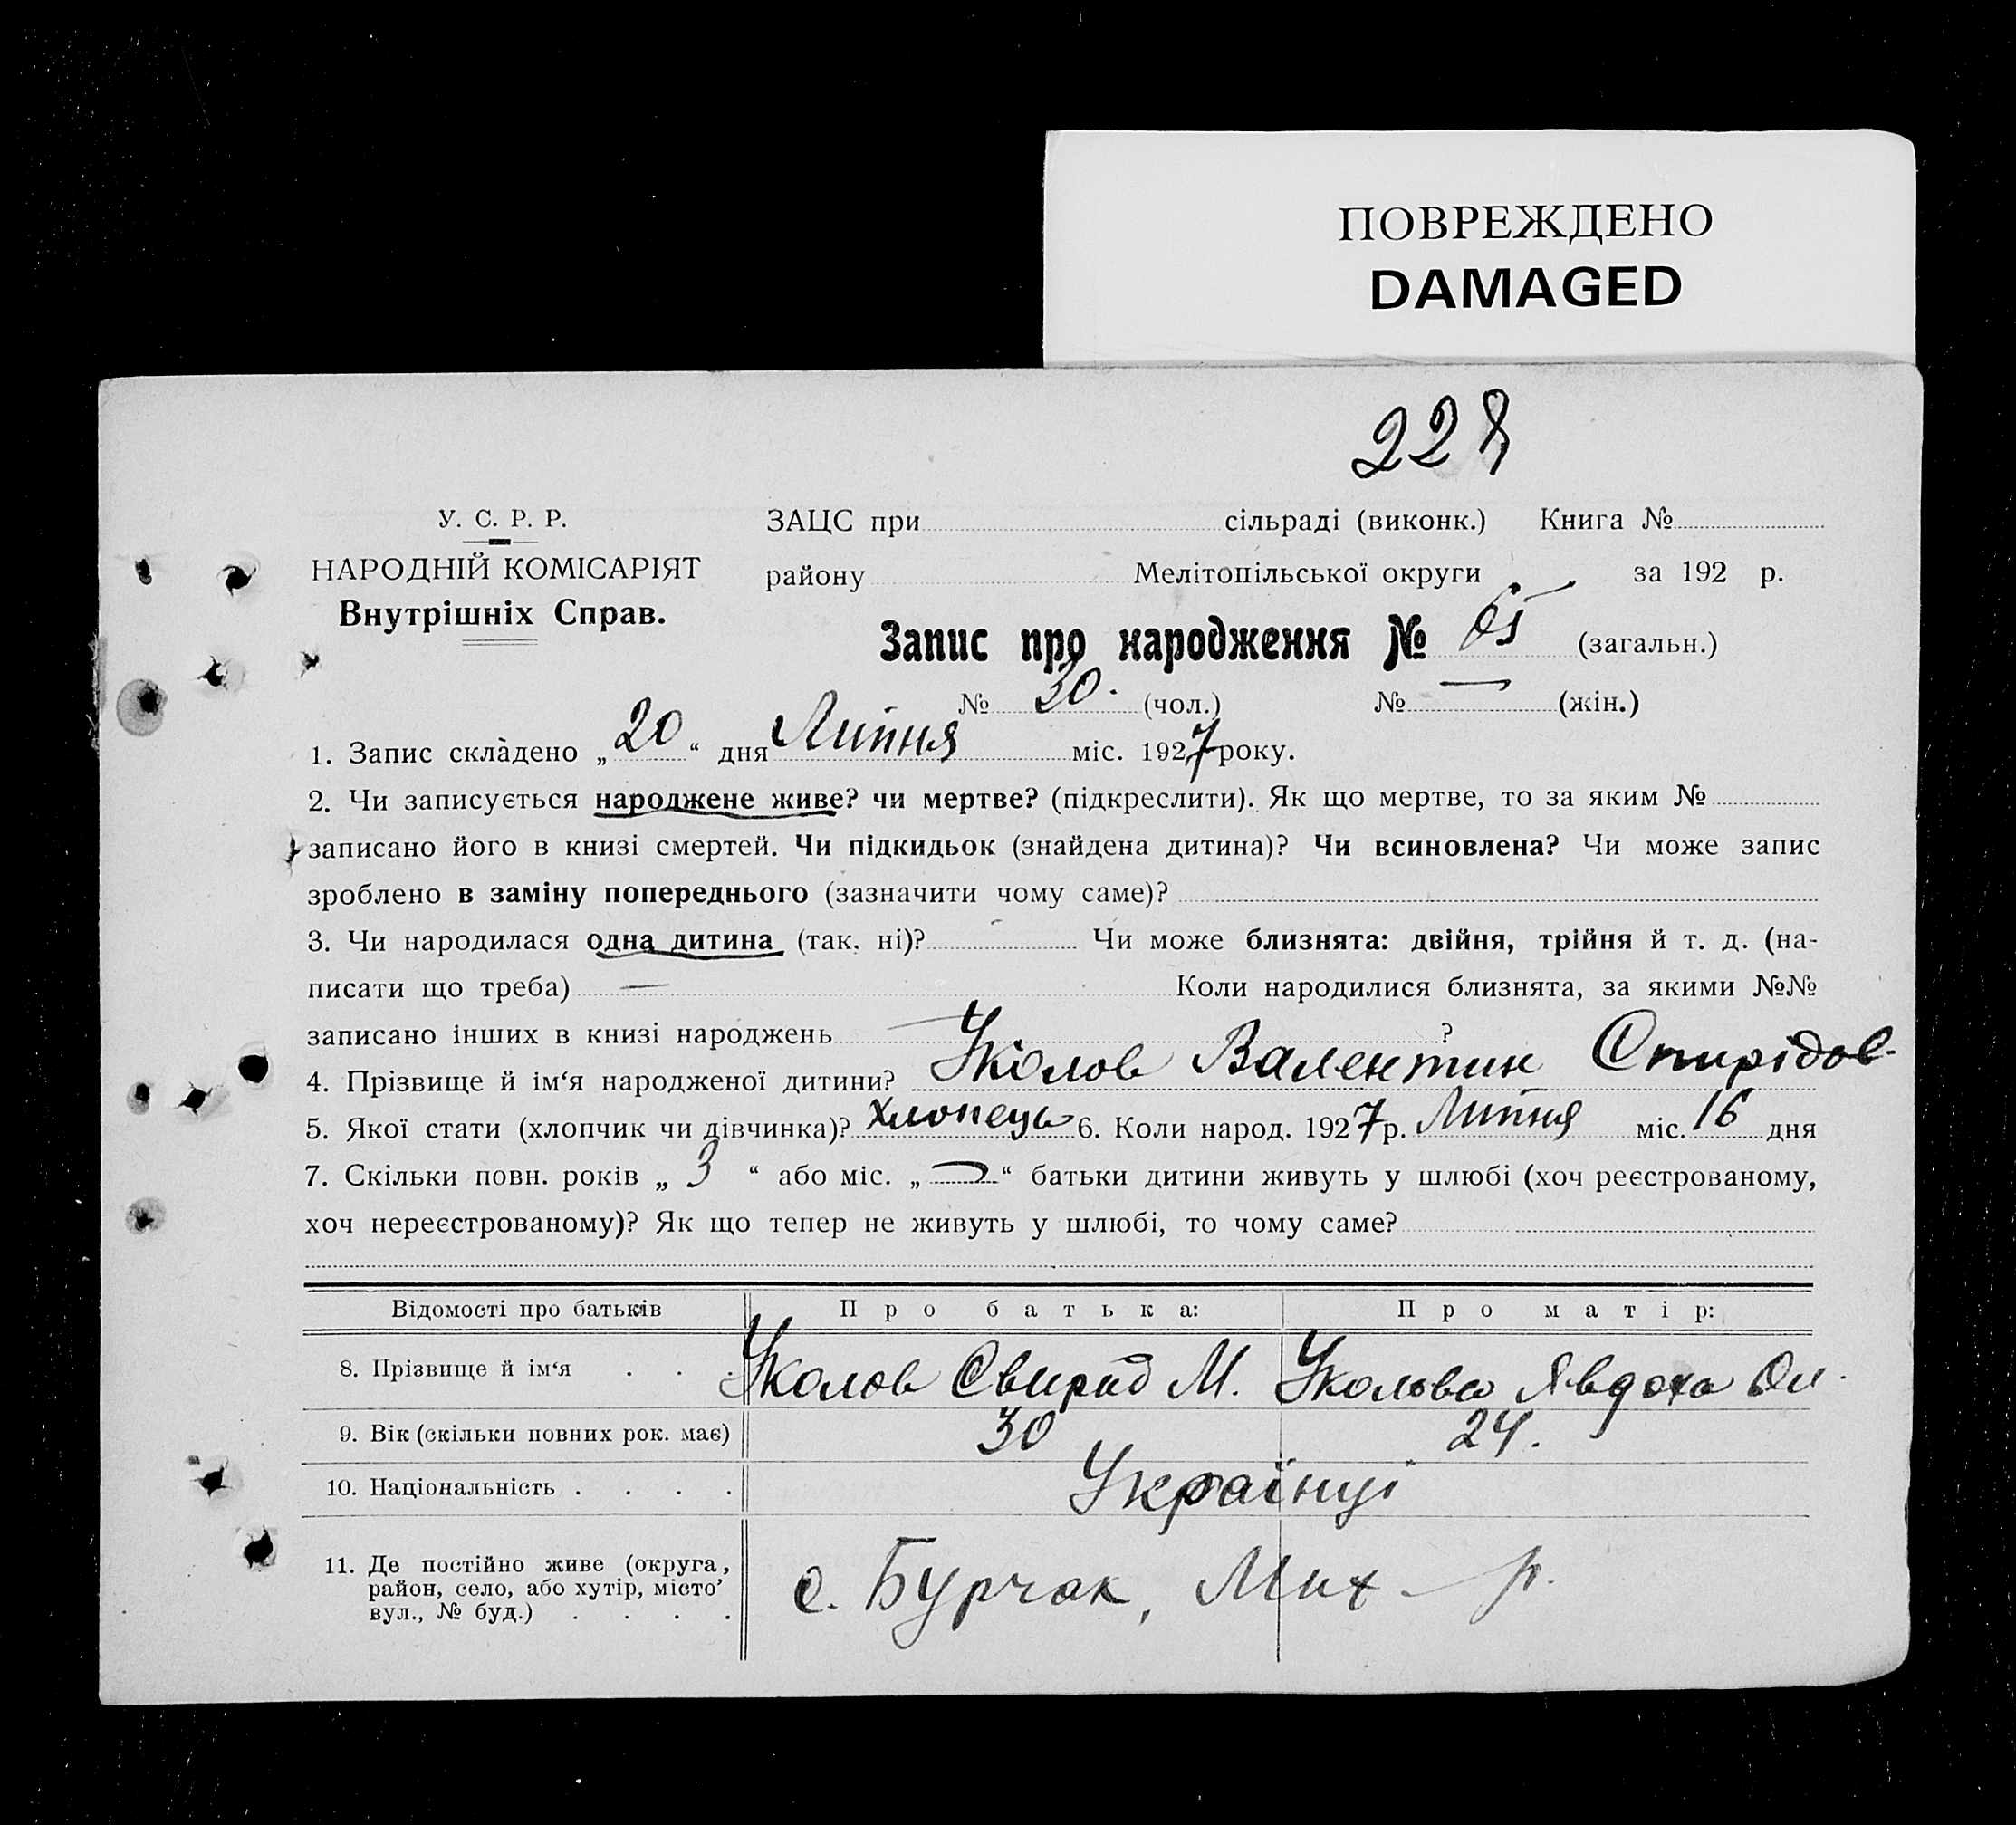 ПОВРЕЖДЕНО
DAMAGED
228
У. С. Р. Р.
НАРОДНІЙ КОМІСАРІЯТ
Внутрішніх Справ.
ЗАЦС при сільраді (виконк.) Книга №
району Мелітопільської округи за 192 р.
Запис про народження № 65 (загальн.)
№ 30. (чол.) № — (жін.)
1. Запис складено „20“ дня Липня міс. 1927 року.
2. Чи записується народжене живе? чи мертве? (підкреслити). Як що мертве, то за яким №
записано його в книзі смертей. Чи підкидьок (знайдена дитина)? Чи всиновлена? Чи може запис
зроблено в заміну попереднього (зазначити чому саме)?
3. Чи народилася одна дитина (так, ні)? Чи може близнята: двійня, трійня й т. д. (на-
писати що треба) — Коли народилися близнята, за якими №№
записано інших в книзі народжень — ?
4. Прізвище й ім‘я народженої дитини? Уколов Валентин Спирідов-
5. Якої стати (хлопчик чи дівчинка)? Хлопець 6. Коли народ. 1927 р. Липня міс. 16 дня
7. Скільки повн. років „3“ або міс. „—“ батьки дитини живуть у шлюбі (хоч реєстрованому,
хоч нереєстрованому)? Як що тепер не живуть у шлюбі, то чому саме?
Відомості про батьків Про батька: Про матір:
8. Прізвище й ім‘я . . . Уколов Свирид М. Уколова Явдоха Ол.
9. Вік (скільки повних рок. має) 30 24.
10. Національність . . . . Українці
11. Де постійно живе (округа,
район, село, або хутір, місто’
вул., № буд.) . . . .
с. Бурчак, Мих - р.